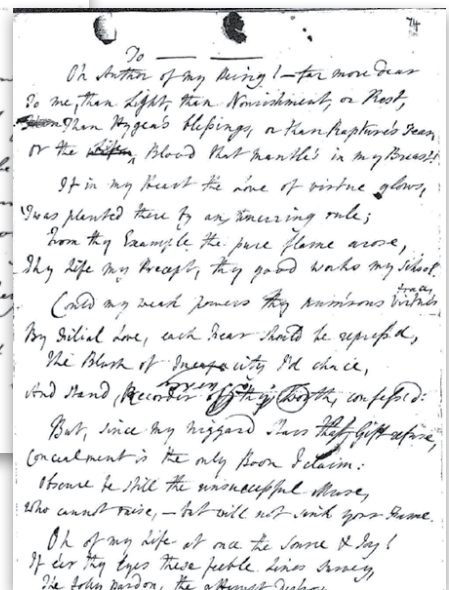 74
To — —
Oh Author of my Being! — far more dear
To me, than Light, than Nourishment, or Rest,
Than Hygea's blessings, or than Rapture's Tear,
Or the Blood that mantle's in my Breast!
If in my Heart the Love of virtue glows,
'Twas planted there by an unerring rule;
From thy Example the pure flame arose,
Thy Life my Precept, thy good works my School.
Could my weak powers thy num'rous virtues trace,
By Filial Love, each Fear should be repress'd,
The Blush of Incapacity I'd chace,
And stand, Recorder of thy worth, confess'd:
But, since my niggard stars that Gift refuse,
Concealment is the only Boon I claim:
Obscure be still the unsuccessful Muse,
Who cannot raise, — but will not sink your Fame.
Oh of my Life at once the Source & Joy!
If e'er thy Eyes these feeble Lines survey,
The folly pardon, the attempt